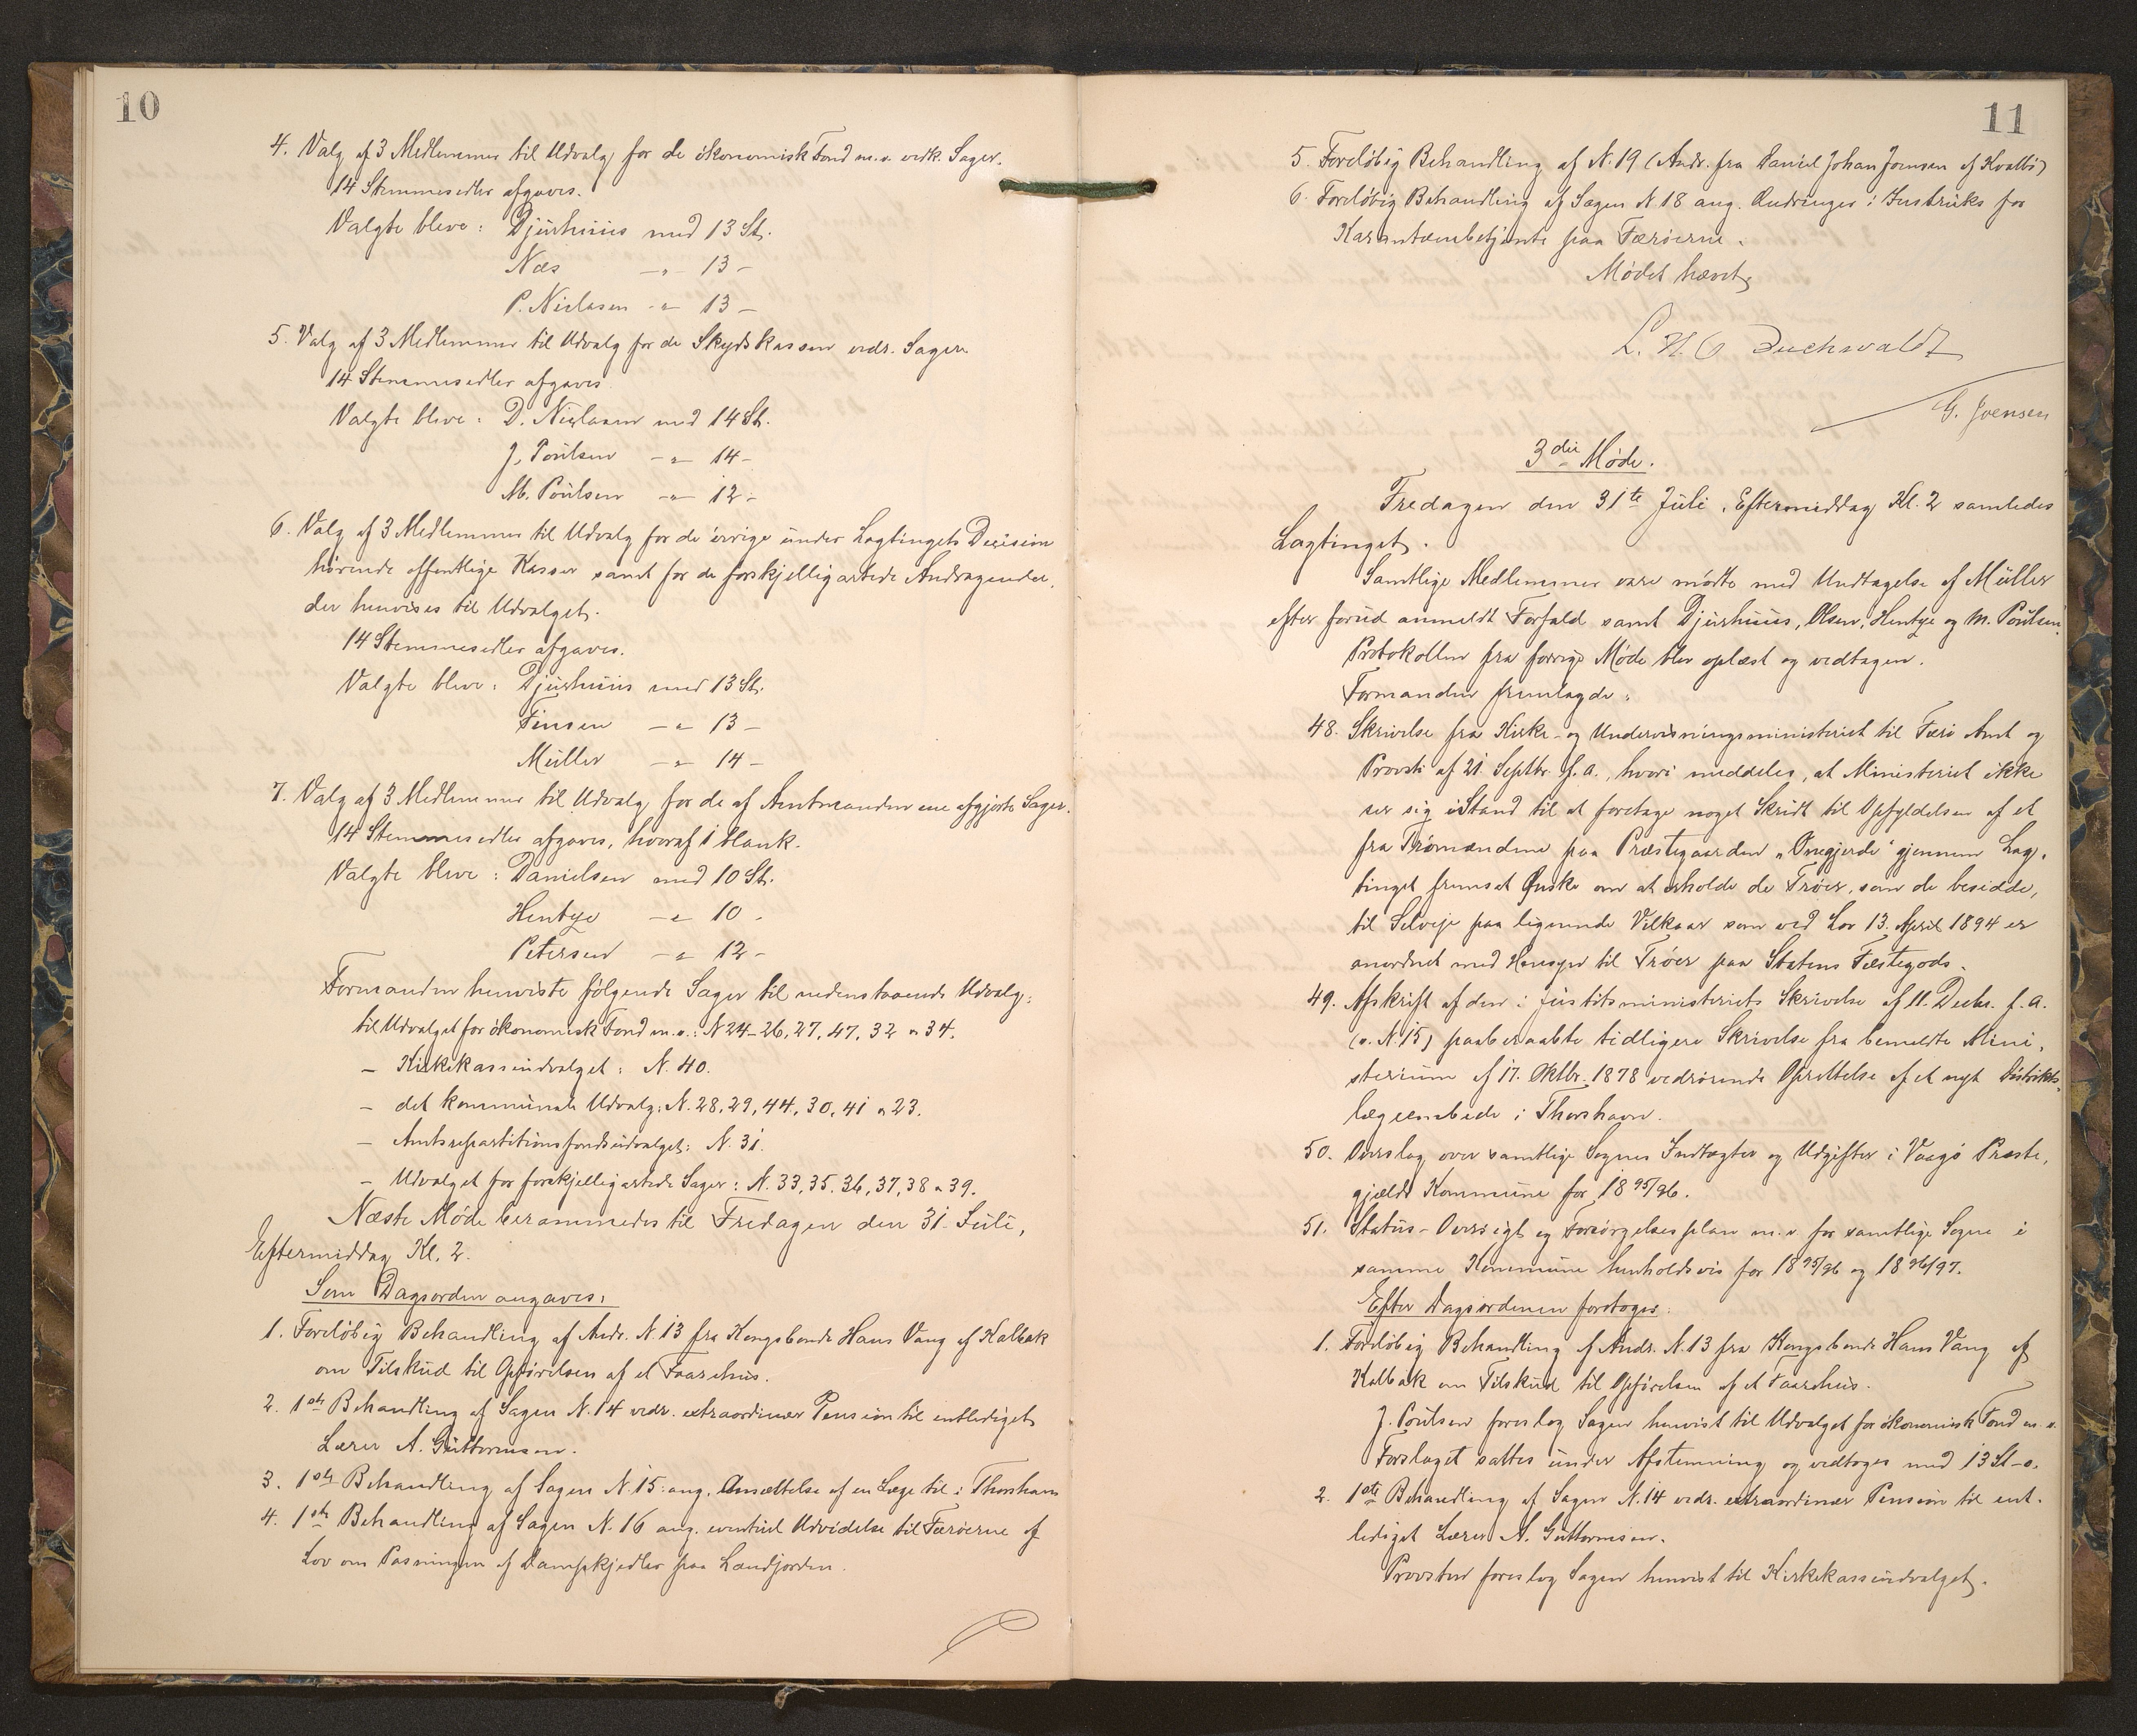 10
4. Valg af 3 Medlemmer til Udvalg for de økonomisk Fond m.v. vedk. Sager.
14 Stemmesedler afgaves.
Valgte bleve: Djurhuus med 13 St.
Næs -"- 13 -
P. Niclasen -"- 13 -
5. Valg af 3 Medlemmer til Udvalg for de Skydskassen vedr. Sager.
14 Stemmesedler afgaves
Valgte bleve: D. Niclasen med 14 St.
J. Poulsen -"- 14 -
M. Poulsen -"- 12 -
6. Valg af 3 Medlemmer til Udvalg for de øvrige under Lagtingets Decision
hørende offentlige Kasser samt for de forskjelligartede Andragender,
der henvises til Udvalget.
14 Stemmesedler afgaves.
Valgte bleve: Djurhuus med 13 St.
Finsen -"- 13 -
Müller -"- 14 -
7. Valg af 3 Medlemmer til Udvalg for de af Amtmanden ene afgjorte Sager.
14 Stemmesedler afgaves, hvoraf 1 blank.
Valgte bleve: Danielsen med 10 St.
Hentze -"- 10 -
Petersen -"- 12 -
Formanden henviste følgende Sager til nedenstaaende Udvalg:
til Udvalget for økonomisk Fond m.v.: N 24-26, 27, 47, 32 & 34.
- Kirkekasseudvalget: N. 40.
- det kommunale Udvalg: N. 28, 29, 44, 30, 41 & 23.
- Amtsrepartitionsfondsudvalget: N. 31.
- Udvalget for forskjelligartede Sager: N. 33, 35, 36, 37, 38 & 39.
Næste Møde berammedes til Fredagen den 31. Juli,
Eftermiddag Kl. 2.
Som Dagsorden angaves:
1. Foreløbig Behandling af Andr. N. 13 fra Kongsbonde Hans Vang af Kalbak
om Tilskud til Opførelsen af et Faarehus.
2. 1ste Behandling af Sagen N. 14 vedr. extraordinær Pension til entlediget
Lærer A. Guttormsen.
3. 1ste Behandling af Sagen N. 15 ang. Ansættelse af en Læge til i Thorshavn
4. 1ste Behandling af Sagen N. 16 ang. eventuel Udvidelse til Færøerne af
Lov om Pasningen af Dampkjedler paa Landjorden.
11
5. Foreløbig Behandling af N. 19 (Andr. fra Daniel Johan Joensen af Kvalbø)
6. Foreløbig Behandling af Sagen N 18 ang. Ændringer i Instruks for
Karantænebetjente paa Færøerne.
Mødet hævet
L. H. C Buchwaldt
G. Joensen
3die Møde.
Fredagen den 31te Juli, Eftermiddag Kl. 2 samledes
Lagtinget.
Samtlige Medlemmer vare mødte med Undtagelse af Müller
efter forud anmeldt Forfald samt Djurhuus, Olsen, Hentze og M. Poulsen.
Protokollen fra forrige Møde blev oplæst og vedtagen.
Formanden fremlagde:
48. Skrivelse fra Kirke- og Undervisningsministeriet til Færø Amt og
Provsti af 21 Septbr. f.a., hvori meddeles, at Ministeriet ikke
ser sig i Stand til at foretage noget Skridt til Opfyldelsen af et
fra Trømændene paa Præstegaarden "Onegjerde" gjennem Lag-
tinget fremsat Ønske om at erholde de Trøer, som de besidde,
til Selveje paa lignende Vilkaar som ved Lov 13. April 1894 er
anordnet med Hensyn til Trøer paa Statens Fæstegods.
49. Afskrift af den i Justitsministeriets Skrivelse af 11. Decbr. f.a.
(v. N. 15) paaberaabte tidligere Skrivelse fra bemeldte Mini-
sterium af 17. Oktbr. 1878 vedrørende Oprettelse af et nyt Distrikts-
lægeembede i Thorshavn.
50. Overslag over samtlige Sognes Indtægter og Udgifter i Vaagø Præste-
gjælds Kommune for 1895/96.
51. Status-Oversigt og Forsørgelsesplan m.v. for samtlige Sogne i
samme Kommune henholdsvis for 1895/96 og 1896/97.
Efter Dagsordenen foretoges:
1. Foreløbig Behandling af Andr. N. 13 fra Kongsbonde Hans Vang af
Kalbak om Tilskud til Opførelsen af et Faarehus.
J. Poulsen foreslog Sagen henvist til Udvalget for økonomisk Fond m.v.
Forslaget sattes under Afstemning og vedtoges med 13 St - o.
2. 1ste Behandling af Sagen N. 14 vedr. extraordinær Pension til ent-
lediget Lærer A. Guttormsen.
Provsten foreslog Sagen henvist til Kirkekasseudvalget.